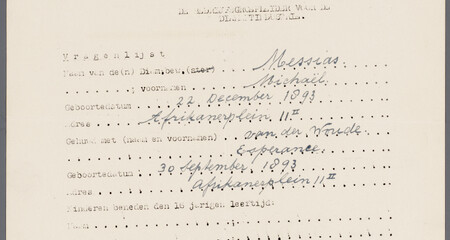 DE GEDELEGEERDLEIDER VOOR DE
DIAMANTINDUSTRIE.
Vragenlijst
Naam van de(n) Diam.bew.(ster) Messias
; voornamen Michaël
Geboortedatum 22 December 1893
Adres Afrikanerplein 11 II
Gehuwd met (naam en voornamen) van der Woude
Esperance
Geboortedatum 30 September 1893
Adres Afrikanerplein 11 II
Kinderen beneden den 18 jarigen leeftijd:
Naam